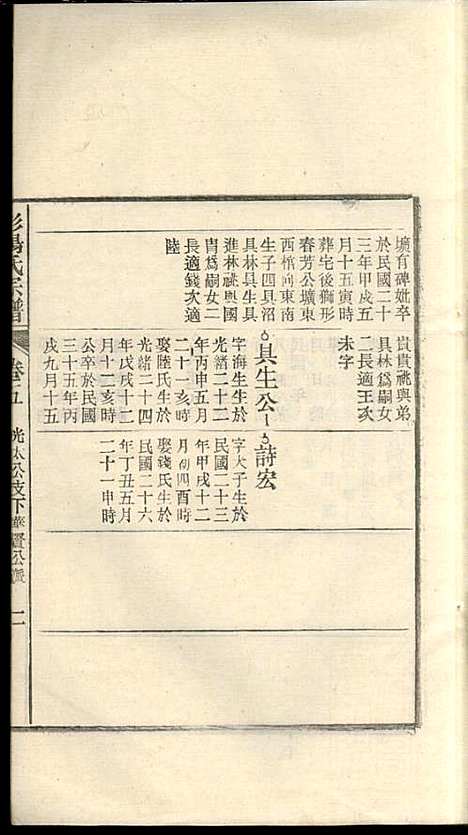 壙有碑妣卒
於民國二十
三年甲戌五
月十五寅時
葬宅後獅形
春芳公壙東
西棺向東南
生子四具沼
具林具生具
進林祧與國
冑爲嗣女二
長適錢次適
陸
貴貴祧與弟
具林爲嗣女
二長適王次
未字
具生公
字海生生於
光緒二十二
年丙申五月
二十一亥時
娶陸氏生於
光緒二十四
年戊戌十二
月十二亥時
公卒於民國
三十五年丙
戌九月十五
詩宏
字大子生於
民國二十三
年甲戌十二
月初四酉時
娶錢氏生於
民國二十六
年丁丑五月
二十一申時
楊氏宗譜
卷十五
光大公支下
一